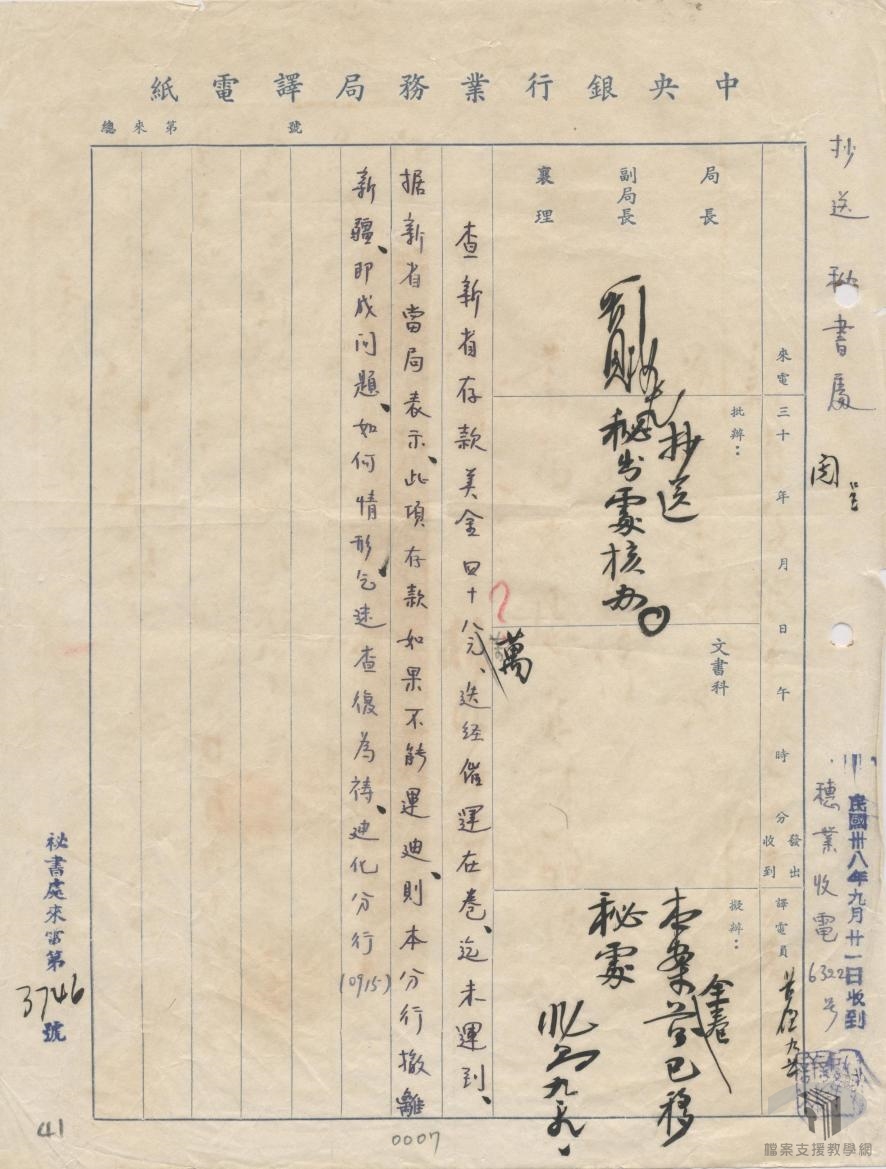 中央銀行業務局譯電紙
總來第 號
抄送秘書處
穗業收電6322号
民國卅八年九月廿一日收到
來電 三十 年 月 日 午 時 分 發出 收到
譯電員
局長
副局長
襄理
批辦：
抄送
秘書處核办
文書科
擬辦：
本案全卷前已移
秘處
查新省存款美金四十八萬元、迭经催運在卷、迄未運到、
据新省當局表示、此項存款如果不能運迪、則本分行撤離
新疆、即成问題、如何情形乞速查復為禱、迪化分行(0915)
秘書處來電第
3746
號
41
0007
檔案支援教學網